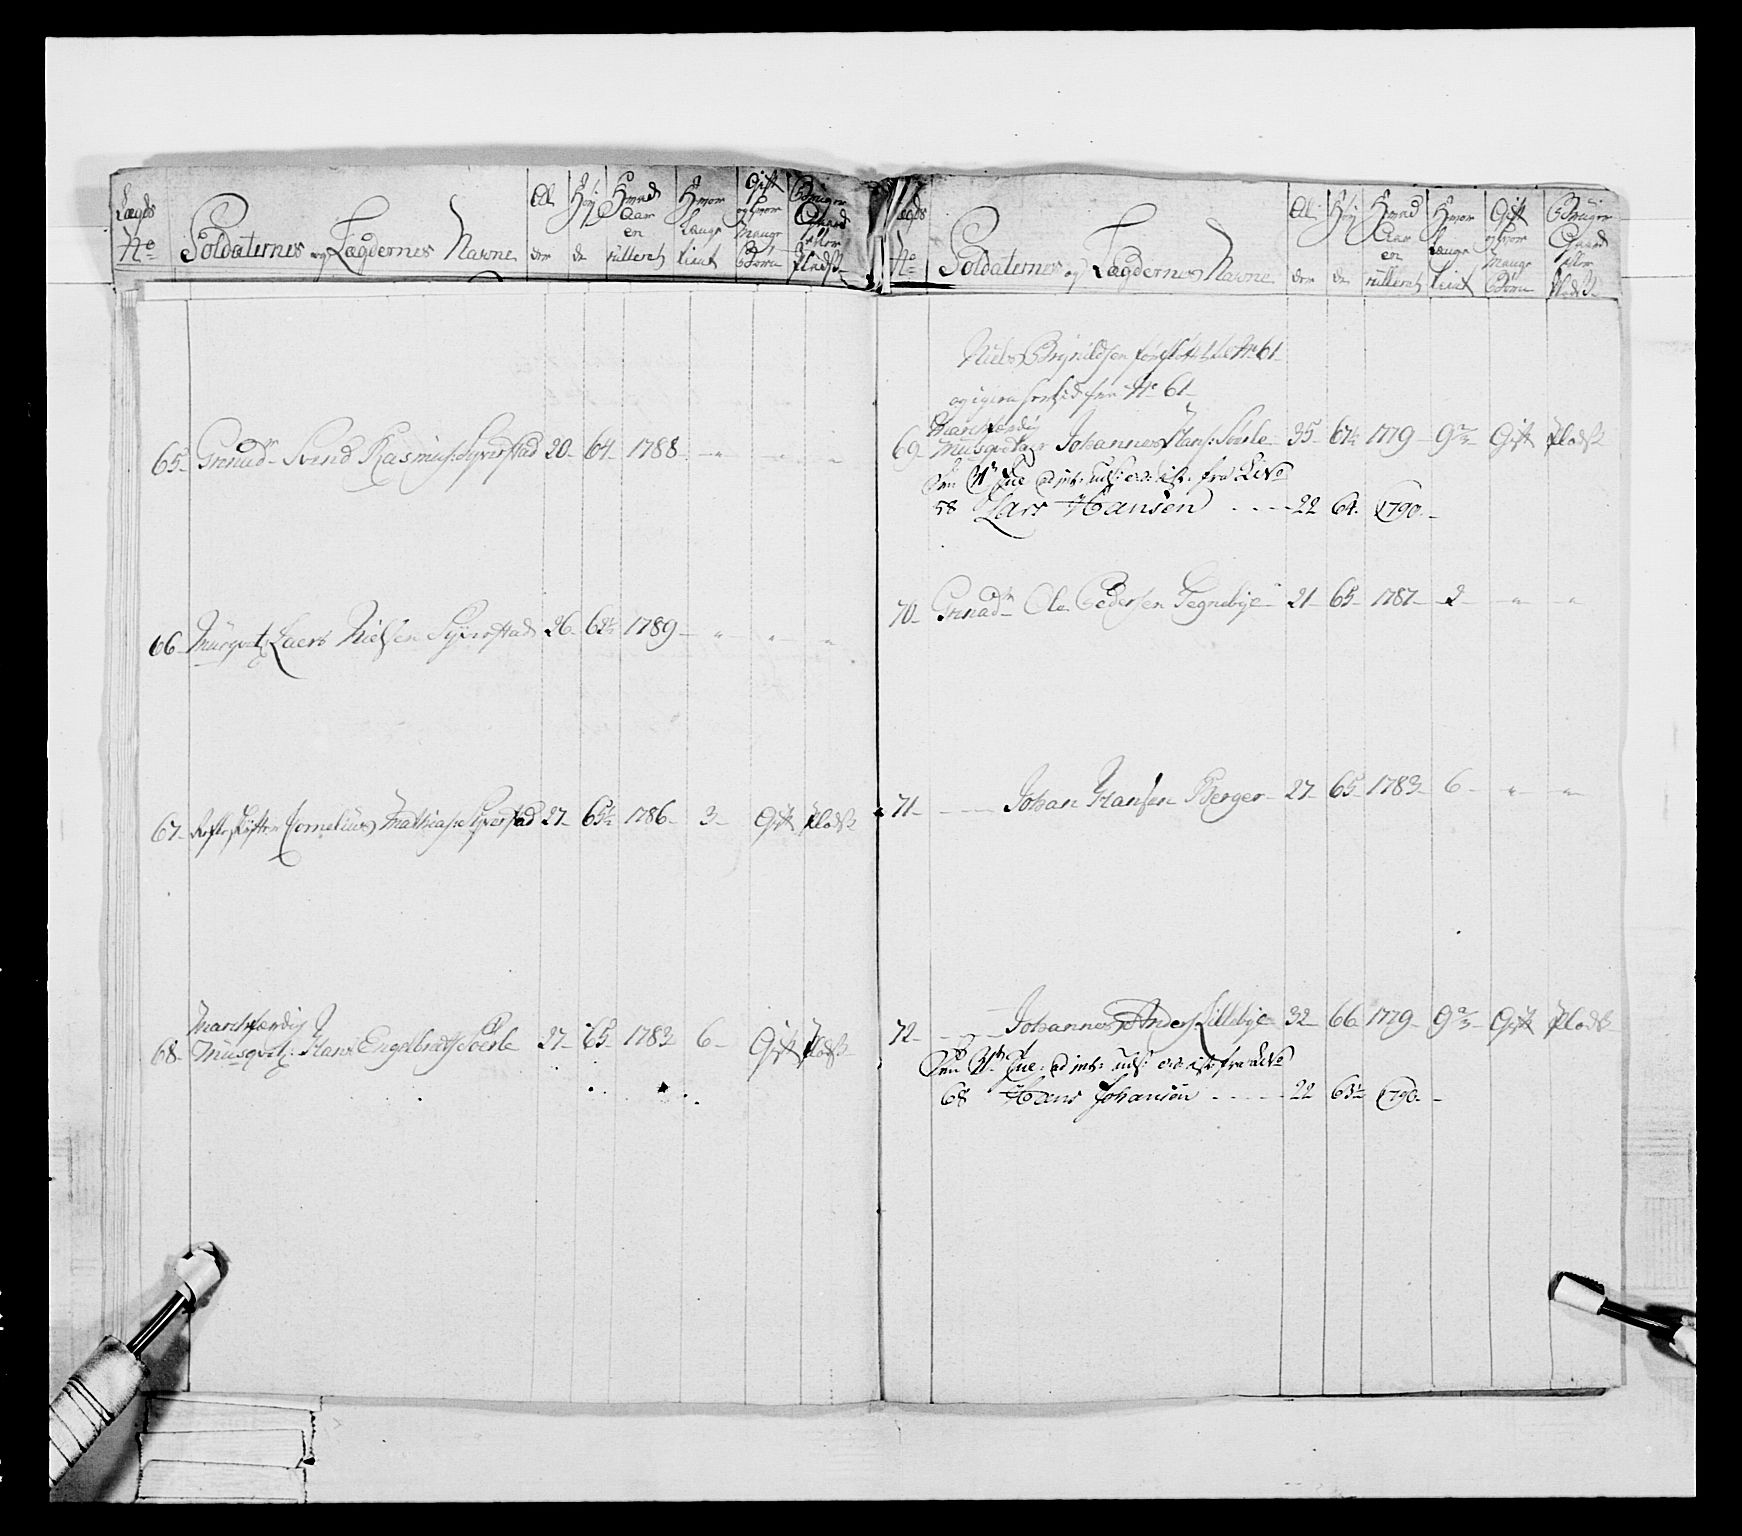 Lægds No Soldaternes og Lægdernes Navne Al der Høy de Hvad Aar en rulleret Hvor længe tient Gift og hvor mange Børn Bruger Gaard eller Plads
65 Grenadr Svend Rasmus: Syverstad 20 64 1788 " " "
66 Musquet Laers Nielsen Syverstad 26 62½ 1789 " " "
67 Cornelius Mathias: Syverstad 27 65½ 1786 3 Gift Plads
Marchfærdig
68 Musqvet: Hans Engelbret: Soerle 27 65 1783 6 Gift Plads
Lægds No Soldaternes og Lægdernes Navne Al der Høy de Hvad Aar en rulleret Hvor længe tient Gift og hvor mange Børn Bruger Gaard eller Plads
Niels Brynildsen forfløttet til No 61
og igien fra No 61
Marchfærdig
69 Musqueteer Johannes Hans: Soerle 35 67¼ 1779 9 Gift Plads
fra
58 Lars Hansen 22 64 1790
70 Grenadr Ole Pedersen Tegnebye 21 65 1787 2 " "
71 Johan Hansen Berger 27 65 1783 6 " "
72 Johannes Anders: Lillebye 32 66 1779 9 Gift Plads
fra
68 Hans Johansen 22 63½ 1790